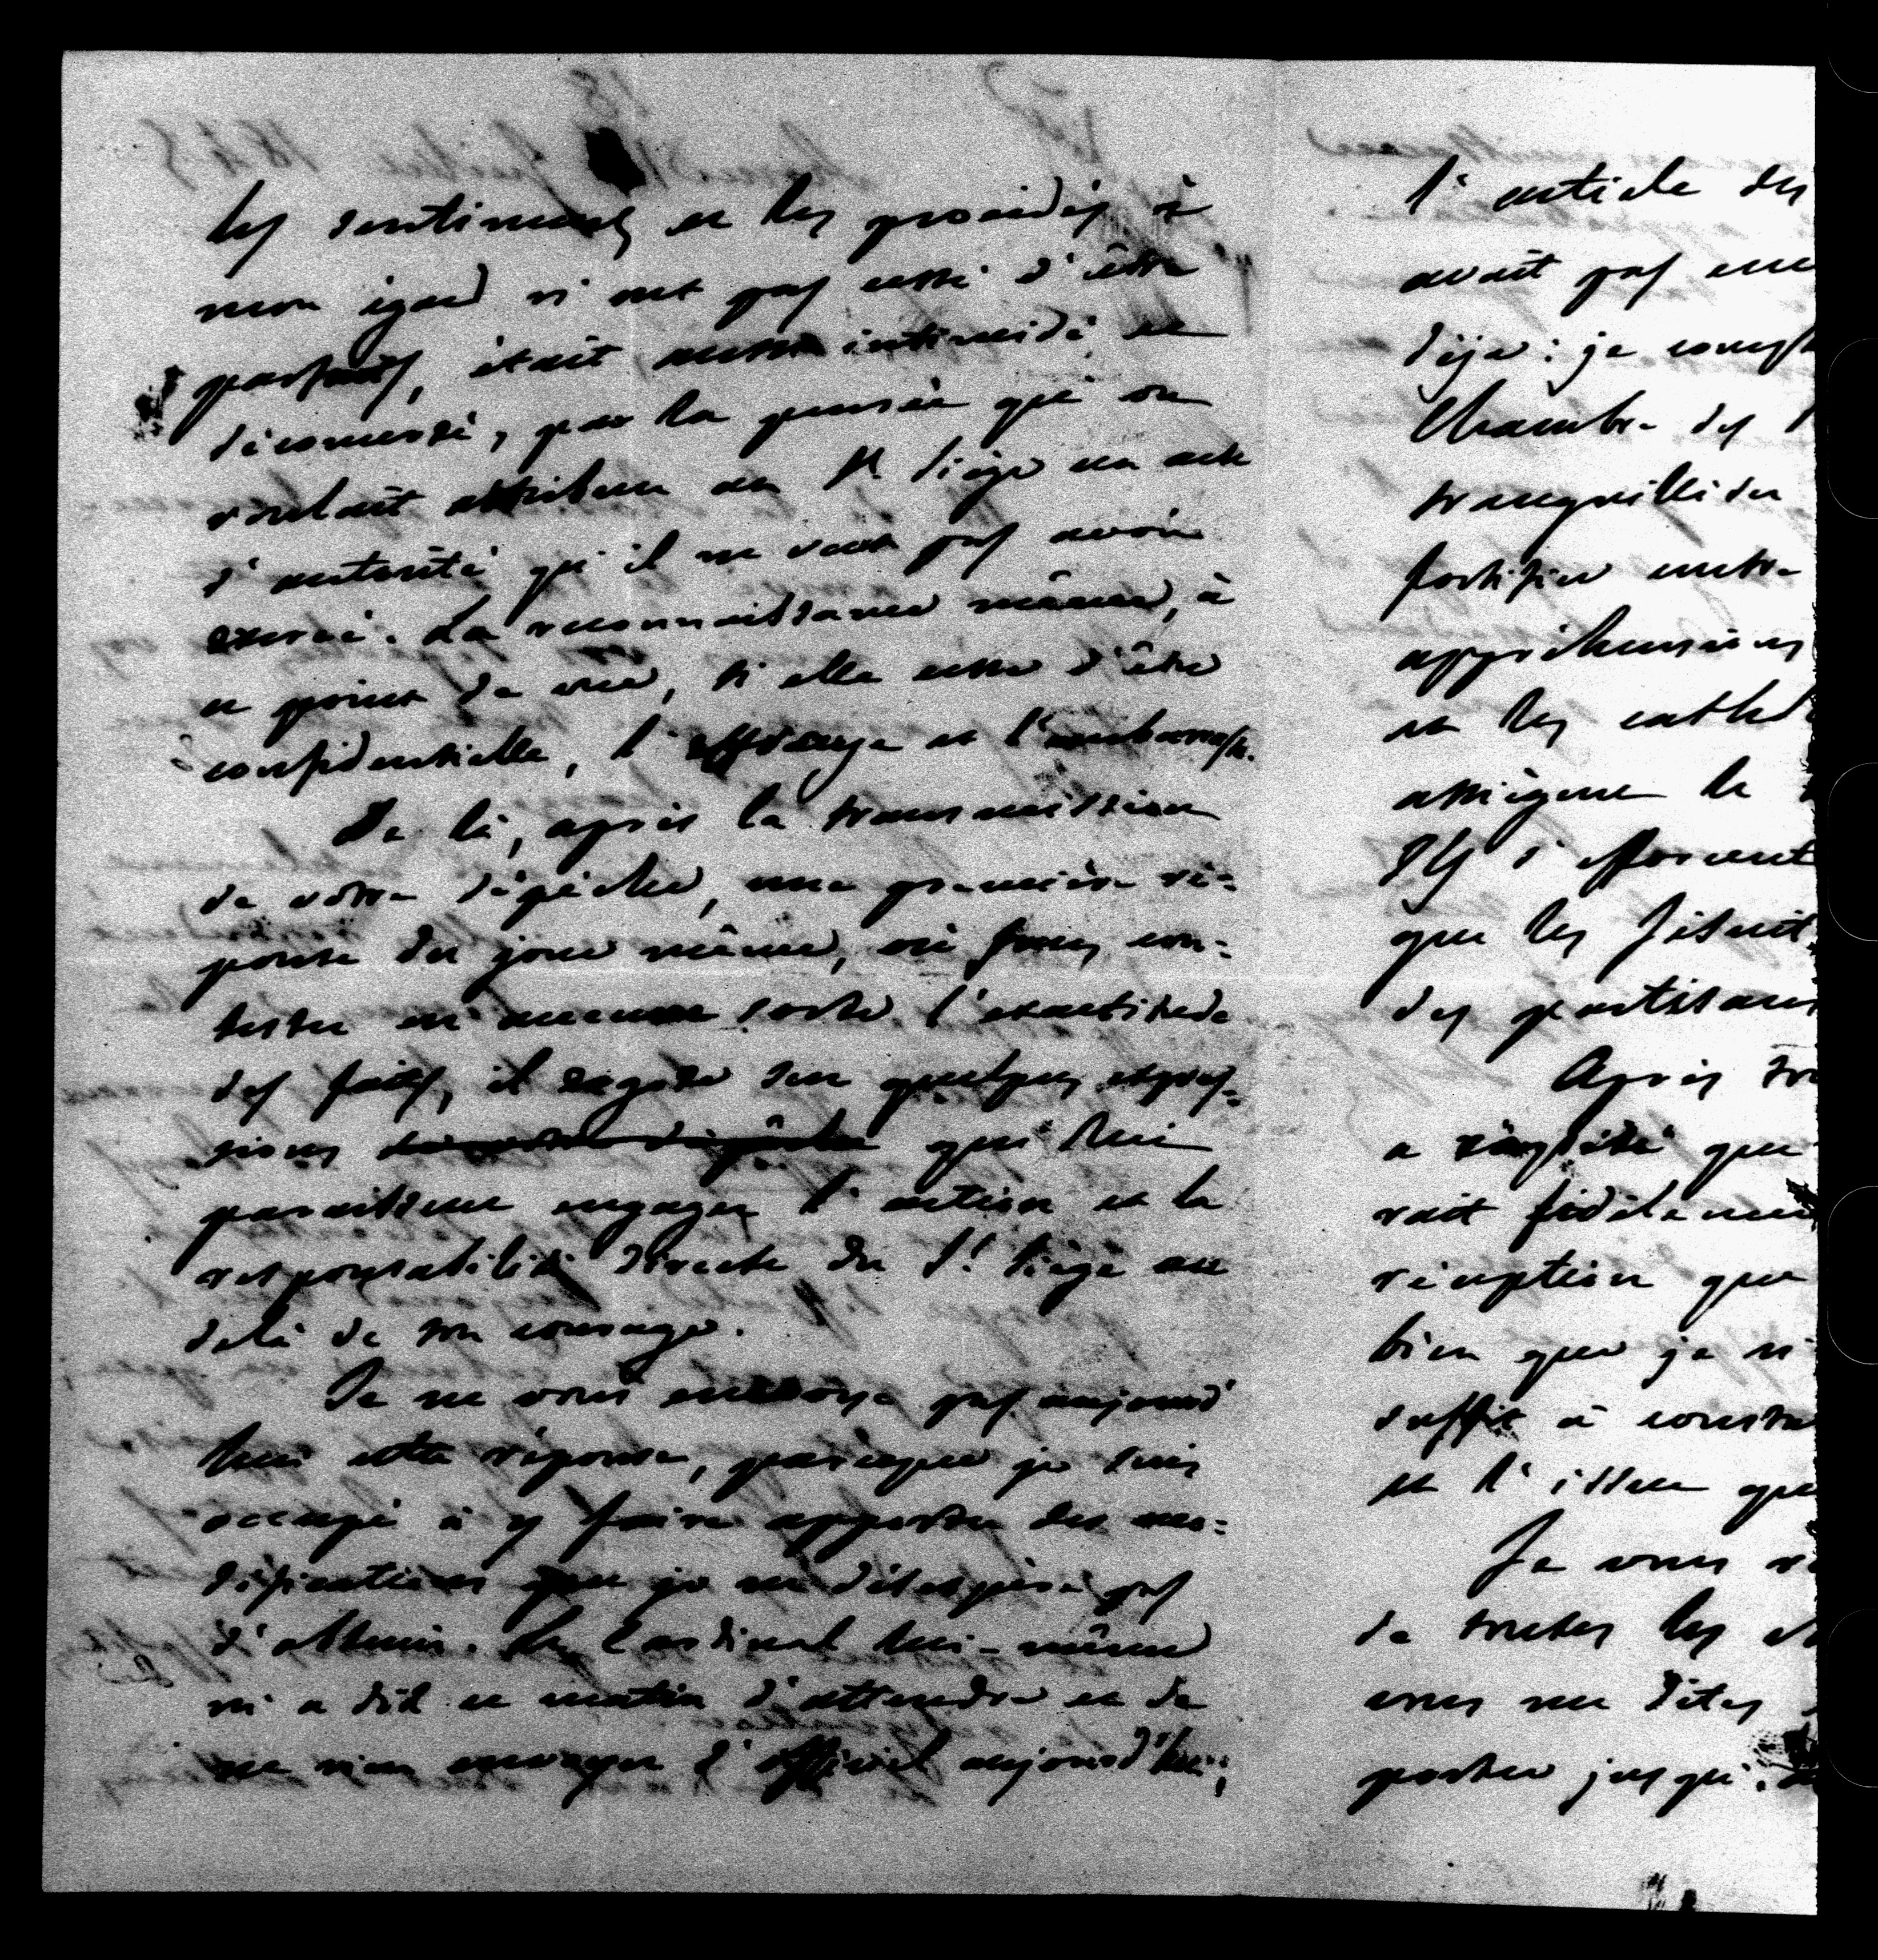 les sentiments et les procédés à
mon égard n'ont pas cessé d'être
parfaits, était intimidé et
déconcerté, par la pensée qu'on
voulait attribuer au St. Siège un acte
d'autorité qu'il ne veut pas avoir
exercé. La reconnaissance même, à
ce point de vue, si elle cesse d'être
confidentielle, l'effraye et l'embarrasse.
De là, après la transmission
de votre dépêche, une première ré=
ponse du jour même, où sans con=
tester en aucune sorte l'exactitude
des faits, il sur quelques expres=
sions qui lui
paraissent engager l'action et la
responsabilité directe du St. Siège au
delà de son courage.
Je ne vous envoye pas aujourd'
hui cette réponse, parceque je suis
occupé à y faire apporter des mo=
difications que je ne désespère pas
d'obtenir. Le Cardinal lui-même
m'a dit ce matin d'attendre et de
ne rien envoyer d'officiel aujourd'hui;
l'article des
avait pas
déjà : je
Chambre des
tranquilliser
fortifier
appréhensions
et les
assiègent le
Ils s'efforcent
que les Jésuit
des partisans
Après
a répété que
rait
réception que
bien que je n'
suffit à
et l'issue que
Je vous
de toutes les
vous me dites
porter jusqu'